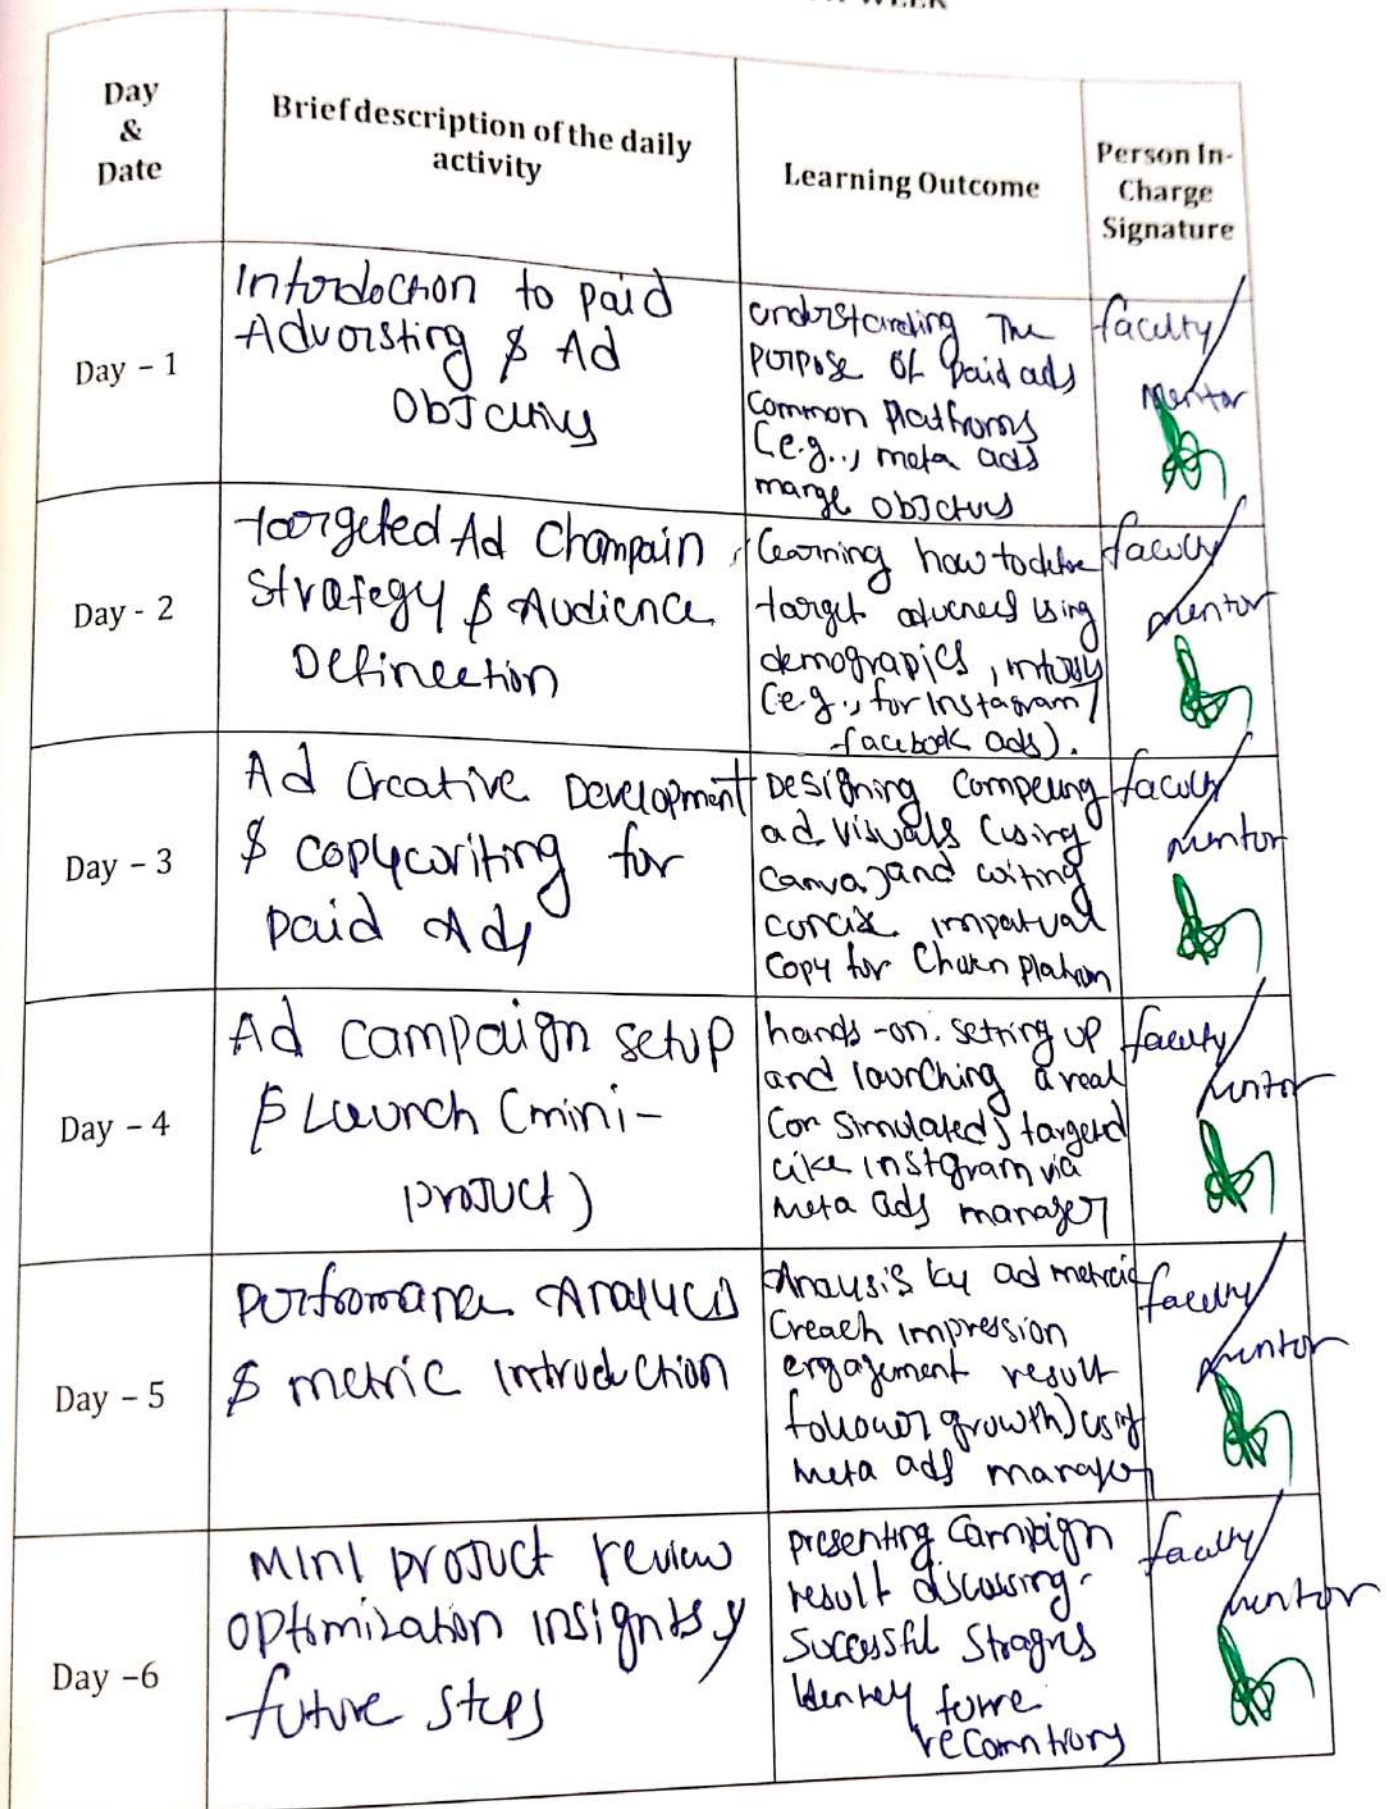 WEEK
Day
&
Date
Brief description of the daily
activity
Learning Outcome
Person In-
Charge
Signature
Day - 1
Intordoction to paid
Advorsting & Ad
Objctivs
understanding The
purpose of paid ads
common Platfroms
(e.g.., meta ads
marge objctivs
faculty/
Mentor
Day - 2
targeted Ad Champain
Strategy & Audience
Defineetion
learning how to
target using
demograpics,
(e.g., for Instagram/
facebook ads).
faculty/
mentor
Day - 3
Ad Creative Development
& copywriting for
paid Ads
Designing
ad visuals (using
canva) and writing
copy for
faculty/
mentor
Day - 4
Ad campaign setup
& Launch (mini-
project)
hands-on. setting up
and launching a real
(or simulated) targeted
like instgram via
meta ads manager
faculty/
mentor
Day - 5
& metric introduction
by ad
(reach impression
engagement result
follower growth) using
meta ads manager
faculty/
mentor
Day -6
Mini project review
optimization insights y
future steps
presenting
result discussing
successful
future
faculty/
mentor